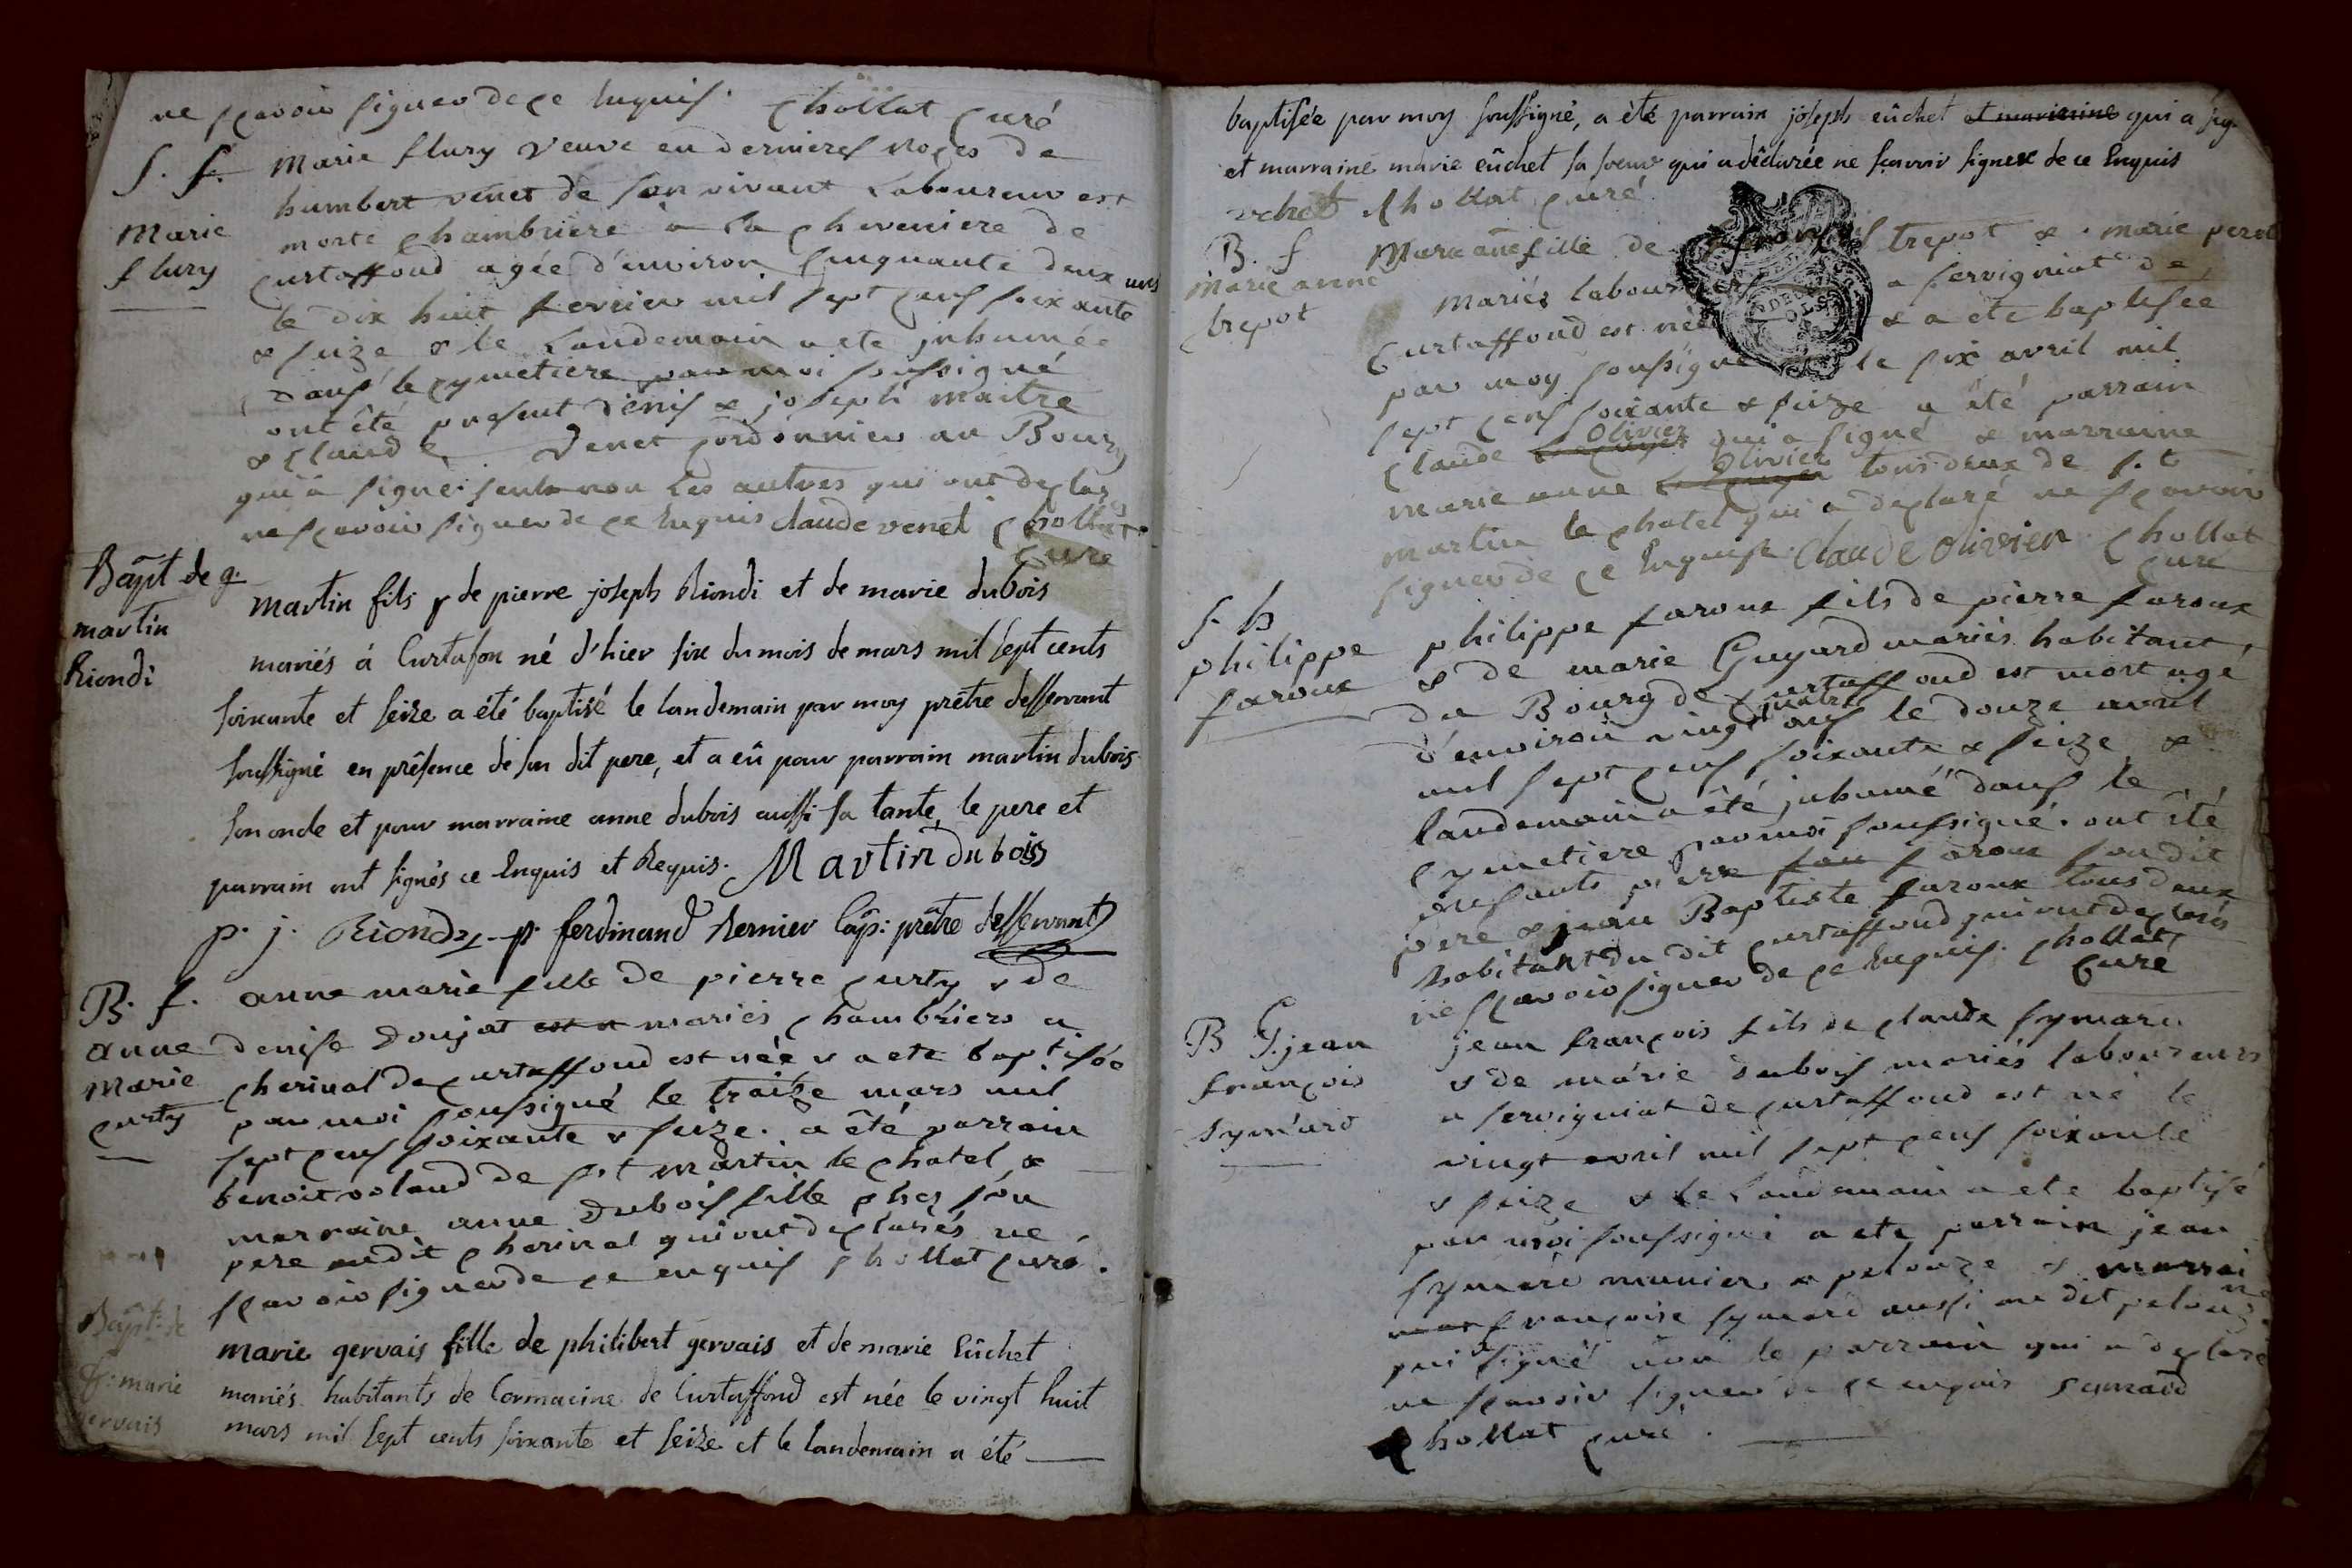 ne sçavoir signer de ce enquis. Chollat curé
S. f.
Marie
flury
Marie flury veuve en dernieres noces de
humbert venet de son vivant Laboureur est
morte chambriere a la cheveniere de
curtaffoud agée d'environ cinquante deux ans
le dix huit fevrier mil sept cens soixante
& seize & le Landemain a ete inhumée
dans le cymetiere par moi soussigné
ont êté present denis & joseph maitre
& claude venet cordonnier au Bourg
qui a signe seul non Les autres qui ont declarés
ne sçavoir signer de ce enquis claude venet Chollat
curé
Bapt de g.
martin
Riondi
martin fils de pierre joseph Riondi et de marie dubois
mariés á Curtafon né d'hier six du mois de mars mil sept cents
soixante et seize a été baptisé le landemain par moy prêtre desservant
soussigné en présence de son dit pere, et a eû pour parrain martin dubois
son oncle et pour marraine anne dubois aussi sa tante, le pere et
parrain ont signés ce Enquis et Requis. Martin dubois
p. j. Riondy p. ferdinand Remier Cap: prêtre desservant
B. f.
anne
Marie
curty
anne marie fille de pierre curty & de
denise Doujat est n mariés chambriers a
cherinal de curtaffoud est née & a ete baptisée
par moi soussigné le traize mars mil
sept cens soixante & seize. a été parrain
benoit voland de st martin le chatel &
marraine anne Dubois fille ches son
pere au dit cherinal qui ont declarés ne
sçavoir signer de ce enquis chollat curé.
Bapt: de
f: marie
gervais
marie gervais fille de philibert gervais et de marie Eûchet
mariés habitants de Cormacine de Curtaffoud est née le vingt huit
mars mil sept cents soixante et seize et le landemain a été
baptisée par moy soussigné, a été parrain joseph eûchet et marraine qui a sig.
et marraine marie eûchet sa soeur qui a déclarée ne sçavoir signer de ce Enquis
Chollat curé
B. f
Marie anne
trepot
Marie anne fille de trepot & marie
mariés a servigniat de
Curtaffoud est née & a ete baptisée
par moy soussigné le six avril mil
sept cens soixante & seize a été parrain
Claude Olivier qui a signé & marraine
marie anne Olivier tous deux de st
martin le chatel qui a declaré ne sçavoir
signer de ce enquise. Claude Olivier. Chollat
curé
S. h
philippe
faroux
philippe faroux fils de pierre faroux
& de marie Guyard mariés habitant
du Bourg de Curtaffoud est mort agé
d'environ vingt quatre ans le douze avril
mil sept cens soixante & seize &
landemain a êté inhumé dans le
cymetiere par moi soussigné. ont êté
presents pierre faroux son dit
pere & jean Baptiste faroux tous deux
habitant du dit curtaffoud qui ont declarés
ne sçavoir signer de ce enquis. Chollat
curé
B G. jean
françois
symard
jean françois fils de claude symard
& de marie dubois mariés laboureurs
a servigniat de curtaffoud est né le
vingt avril mil sept cens soixante
& seize & le Landemain a ete baptisé
par moi soussigné a ete parrain jean
symard munier a pelouze & marraine
françoise symard aussi au dit pelouze
qui a signé non le parrain qui a declaré
ne sçavoir signer de ce enquis symard
Chollat curé.